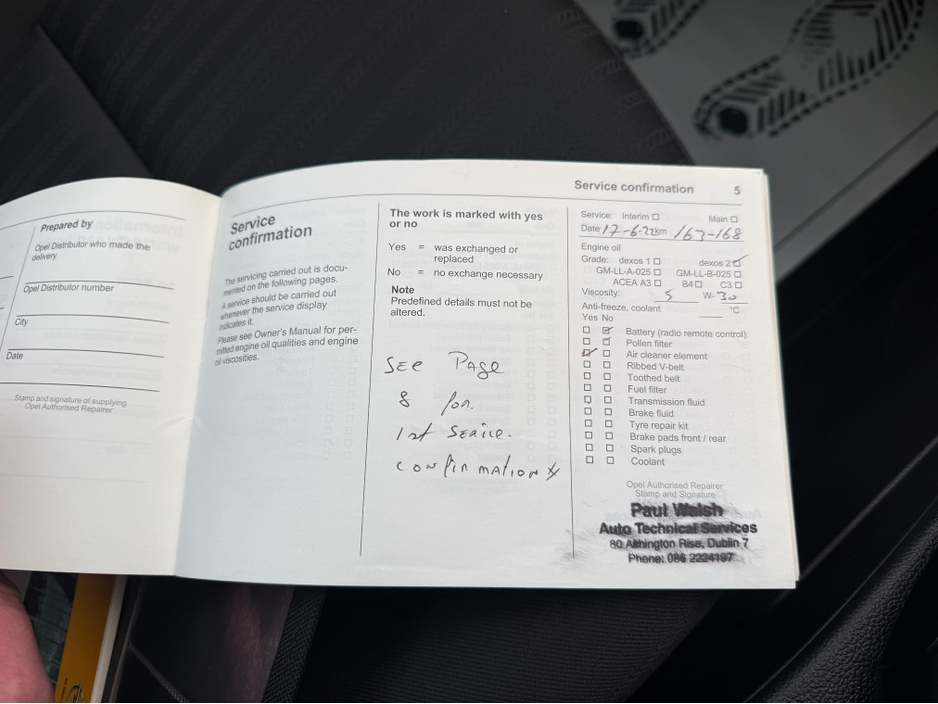 Prepared by
Opel Distributor who made the
delivery
Opel Distributor number
City
Date
Stamp and signature of supplying
Opel Authorised Repairer
Service confirmation 5
Service
confirmation
The servicing carried out is docu-
mented on the following pages.
A service should be carried out
whenever the service display
indicates it.
Please see Owner's Manual for per-
mitted engine oil qualities and engine
oil viscosities.
The work is marked with yes
or no
Yes = was exchanged or
replaced
No = no exchange necessary
Note
Predefined details must not be
altered.
SEE PAGE
8 for
1st SERVICE
CONFIRMATION
Service: Interim ☐ Main ☐
Date 17-6-22 km 163-168
Engine oil
Grade: dexos 1 ☐ dexos 2 ☑
GM-LL-A-025 ☐ GM-LL-B-025 ☐
ACEA A3 ☐ B4 ☐ C3 ☐
Viscosity: 5 W-30
Anti-freeze, coolant °C
Yes No
☐ ☑ Battery (radio remote control)
☐ ☑ Pollen filter
☑ ☐ Air cleaner element
☐ ☐ Ribbed V-belt
☐ ☐ Toothed belt
☐ ☐ Fuel filter
☐ ☐ Transmission fluid
☐ ☐ Brake fluid
☐ ☐ Tyre repair kit
☐ ☐ Brake pads front / rear
☐ ☐ Spark plugs
☐ ☐ Coolant
Opel Authorised Repairer
Stamp and Signature
Paul Walsh
Auto Technical Services
80 Ashington Rise, Dublin 7
Phone: 086 2224197